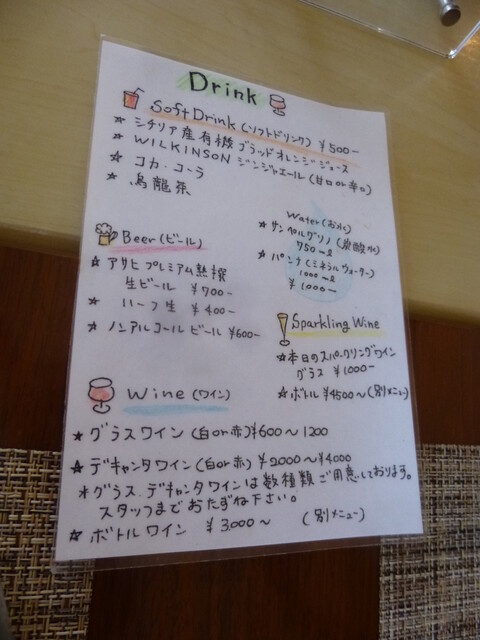 Drink
Soft Drink (ソフトドリンク) ¥500-
★ シチリア産有機ブラッドオレンジジュース
★ WILKINSON ジンジャエール (甘口or辛口)
★ コカ・コーラ
★ 烏龍茶
Water (お水)
★ サンペルグリノ (炭酸水)
750ml
★ パンナ (ミネラルウォーター)
1000ml
¥1000-
Beer (ビール)
★ アサヒプレミアム熟撰
生ビール ¥700-
★ ハーフ生 ¥400-
★ ノンアルコールビール ¥600-
Sparkling Wine
★ 本日のスパークリングワイン
グラス ¥1000-
★ ボトル ¥4500~ (別メニュー)
Wine (ワイン)
★ グラスワイン (白or赤) ¥600~1200
★ デキャンタワイン (白or赤) ¥2000~¥4000
＊グラス、デキャンタワインは数種類ご用意しております。
スタッフまでおたずね下さい。
★ ボトルワイン ¥3,000~ (別メニュー)